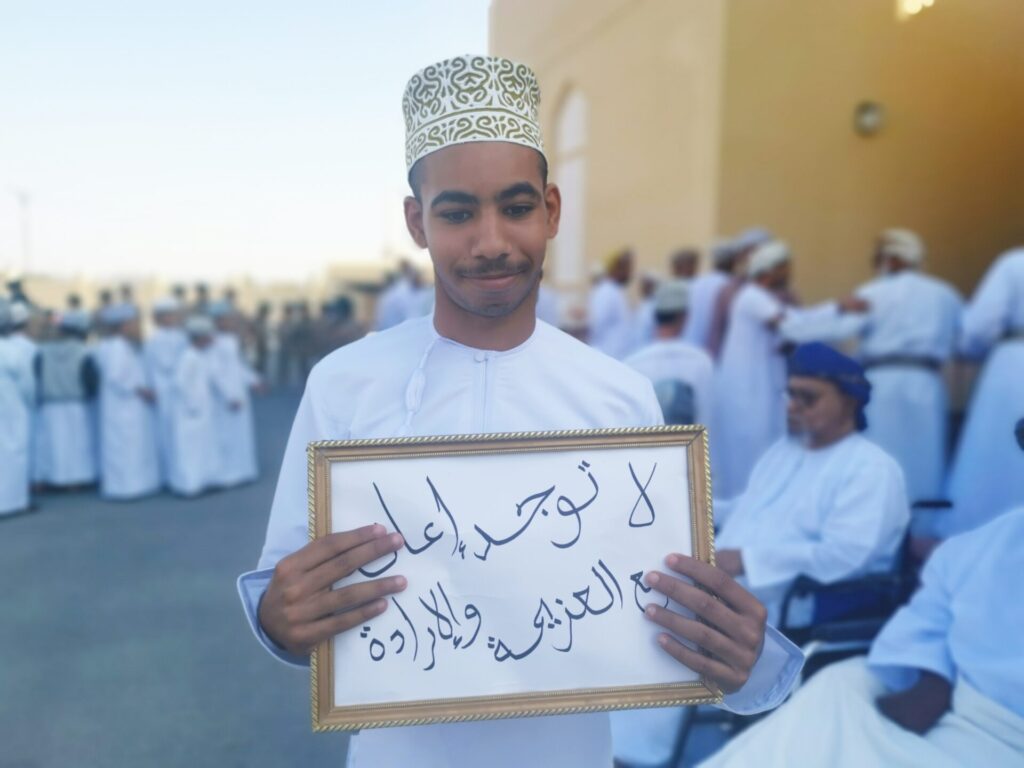 لا توجد
مع العزيمة والإرادة